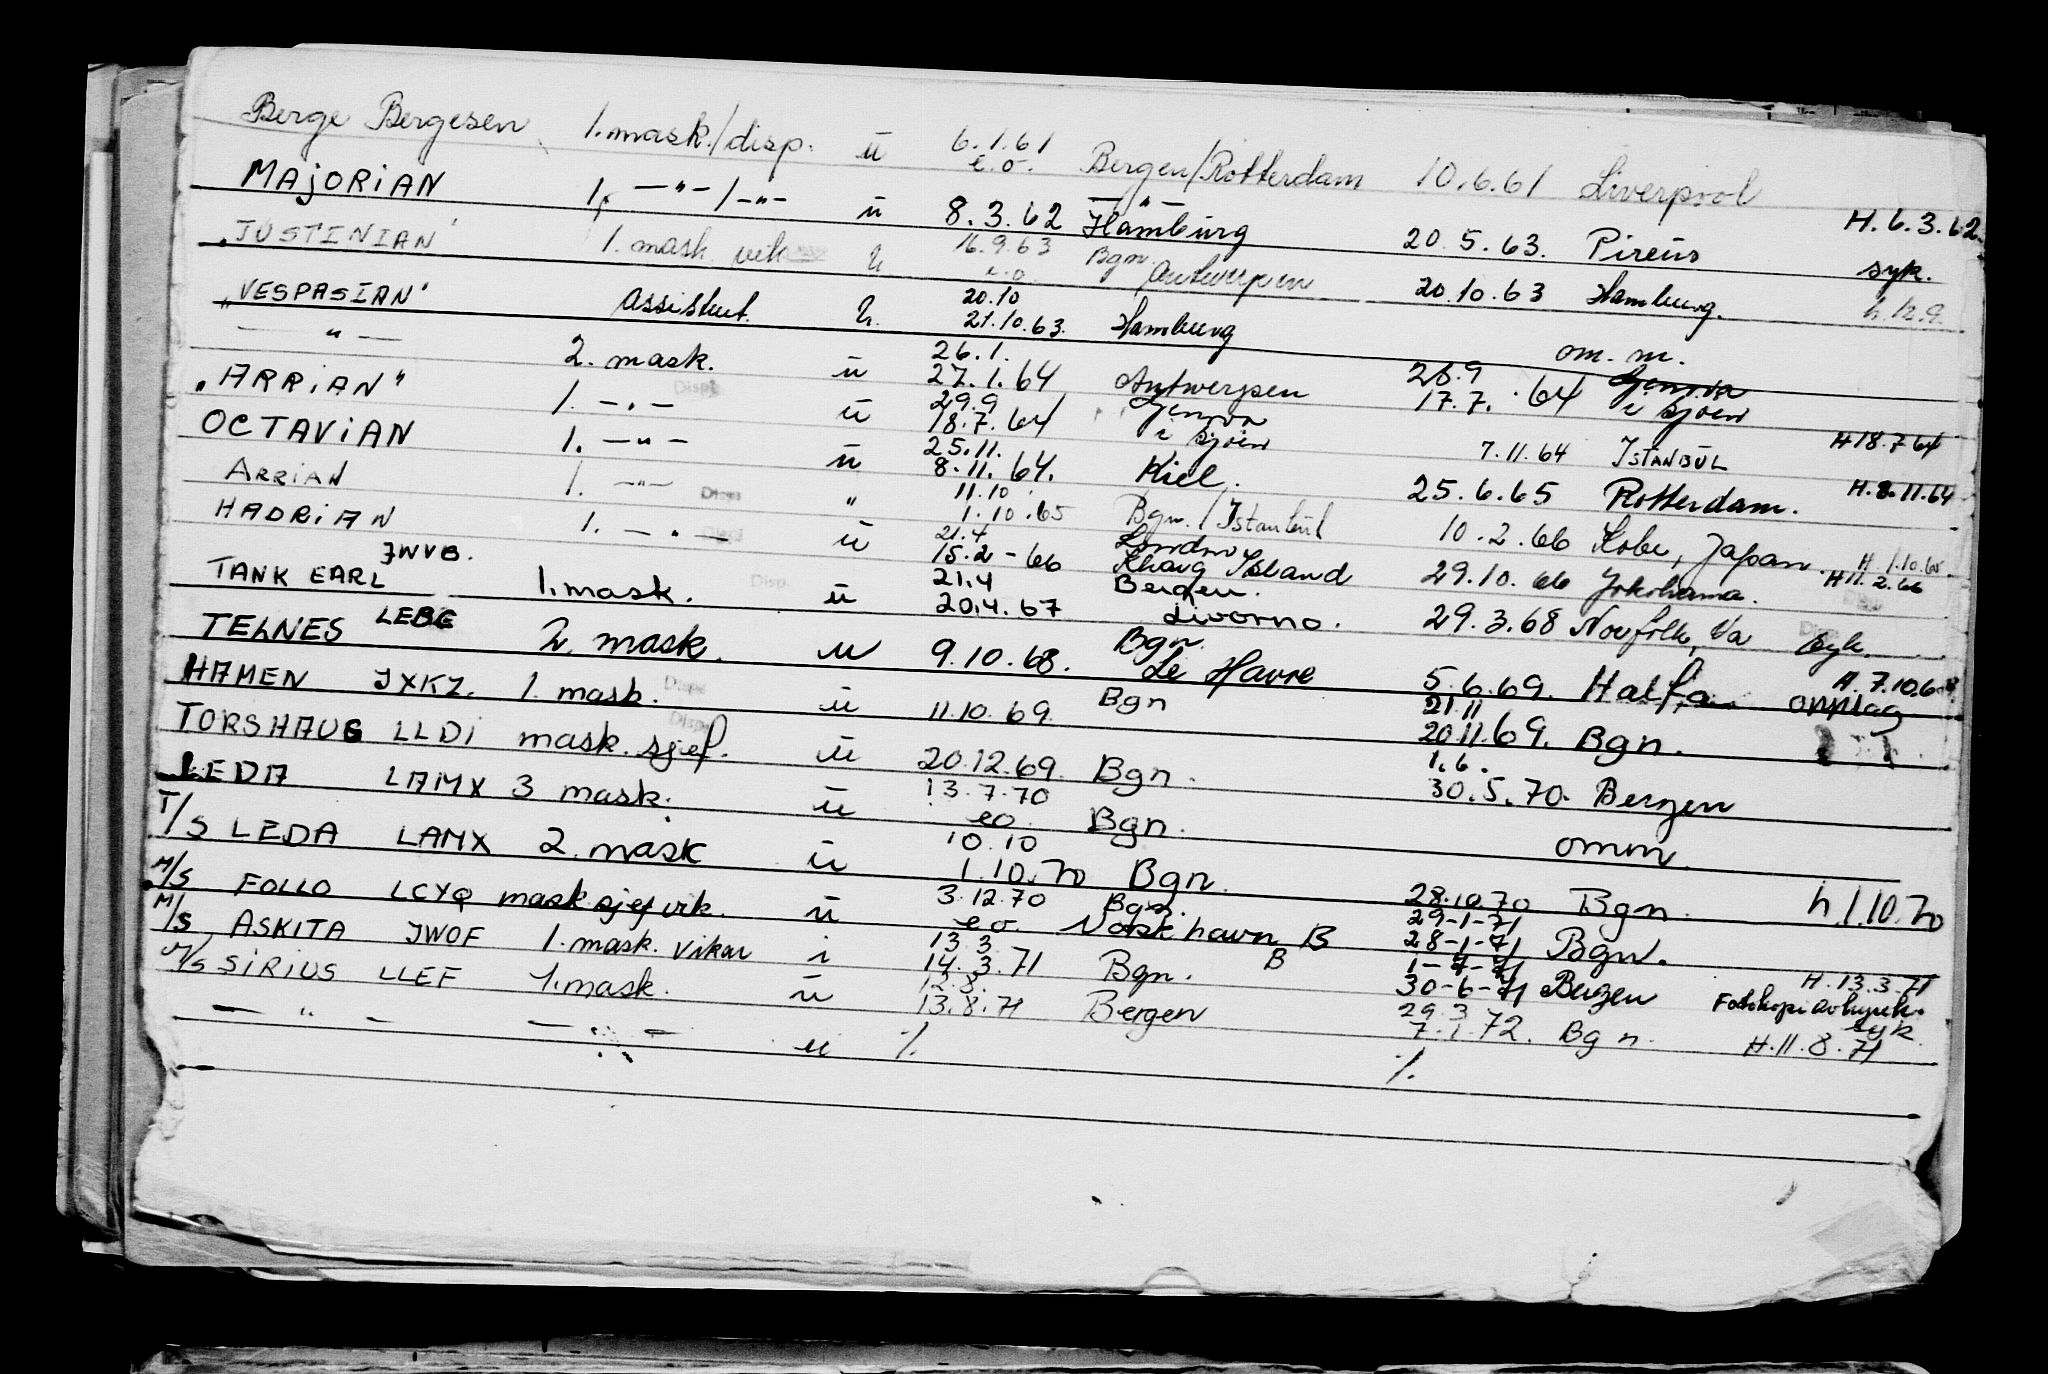 Berge Bergesen 1. mask./disp. ü 6.1.61 e.o. Bergen/Rotterdam 10.6.61 Liverpool
MAJORIAN 1. —"— / —"— ü 8.3.62 —"— Hamburg 20.5.63. Pireüs H. 6.3.62 syk.
"JUSTINIAN" 1. mask vik ü 16.9.63 e.o Bgn. Antwerpen 20.10.63 Hamburg. h. 12.9.
"VESPASIAN" Assistent. ü. 20.10 21.10.63. Hamburg om. m.
—"— 2. mask. ü 26.1. 27.1.64 Antwerpen 28.9 17.7. 64 Genova i sjøen
"ARRIAN" 1. —"— Disp. ü 29.9 18.7.64 Genova i sjøen 7.11.64 ISTANBUL H 18.7 64
OCTAVIAN 1. —"— ü 25.11. 8.11.64. Kiel. 25.6.65 Rotterdam. H. 8.11.64
ARRIAN 1. —"— Disp. " 11.10 1.10.65 Bgn. / Istanbul 10.2.66 Kobe, Japan. H 1.10.65
HADRIAN 1. —"— Disp. ü 21.4 15.2-66 London Kharg Island 29.10.66 Yokohama. H 11.2.66
TANK EARL JWVB. 1. mask. Disp. ü 21.4 20.4.67 Bergen. Livorno. 29.3.68 Norfolk, Va Disp. syk.
TELNES LEBG 2. mask. u 9.10.68. Bgn. Le Havre 5.6.69. Haifa H. 7.10.68 opplag
HAMEN JXKZ. 1. mask. Disp. ü 11.10.69. Bgn 21.11 20.11.69. Bgn.
TORSHAUG LLDI mask. sjef. Disp. ü 20.12.69. Bgn. 1.6. 30.5.70. Bergen
LEDA LAMX 3 mask. ü 13.7.70 eo. Bgn. omm.
T/S LEDA LAMX 2. mask ü 10.10 1.10.70 Bgn. 28.10.70 Bgn. h 1.10.70
M/S FOLLO LCYQ mask.sjef vik. ü 3.12.70 eo Bgn. Vaskhavn B 29-1-71 28-1-71 Bgn.
M/S ASKITA JWOF 1. mask. Vikar i 13.3 14.3.71 Bgn. B 1-7-71 30-6-71 Bergen H. 13.3.71
M/S SIRIUS LLEF 1. mask. ü 12.8. 13.8.71 Bergen 29.3 7.1.72. Bgn. syk H. 11.8.71
—"— —"— u %. %.